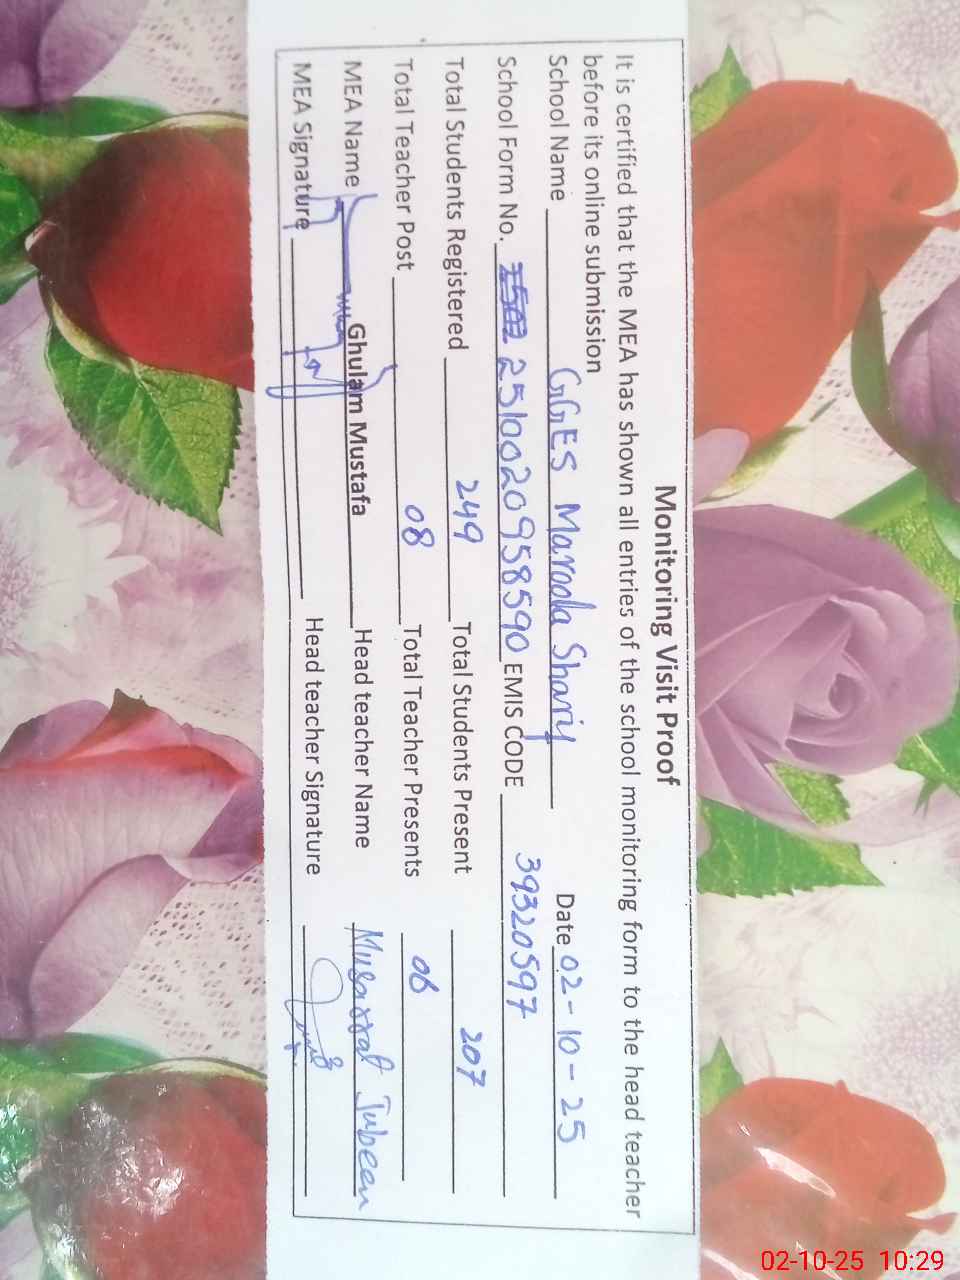 Monitoring Visit Proof
It is certified that the MEA has shown all entries of the school monitoring form to the head teacher
before its online submission
School Name GGES Maroola Sharif Date 02-10-25
School Form No. 2510020958590 EMIS CODE 39320597
Total Students Registered 249 Total Students Present 207
Total Teacher Post 08 Total Teacher Presents 08
MEA Name Ghulam Mustafa Head teacher Name Musarrat Jubeen
MEA Signature Head teacher Signature
02-10-25 10:29